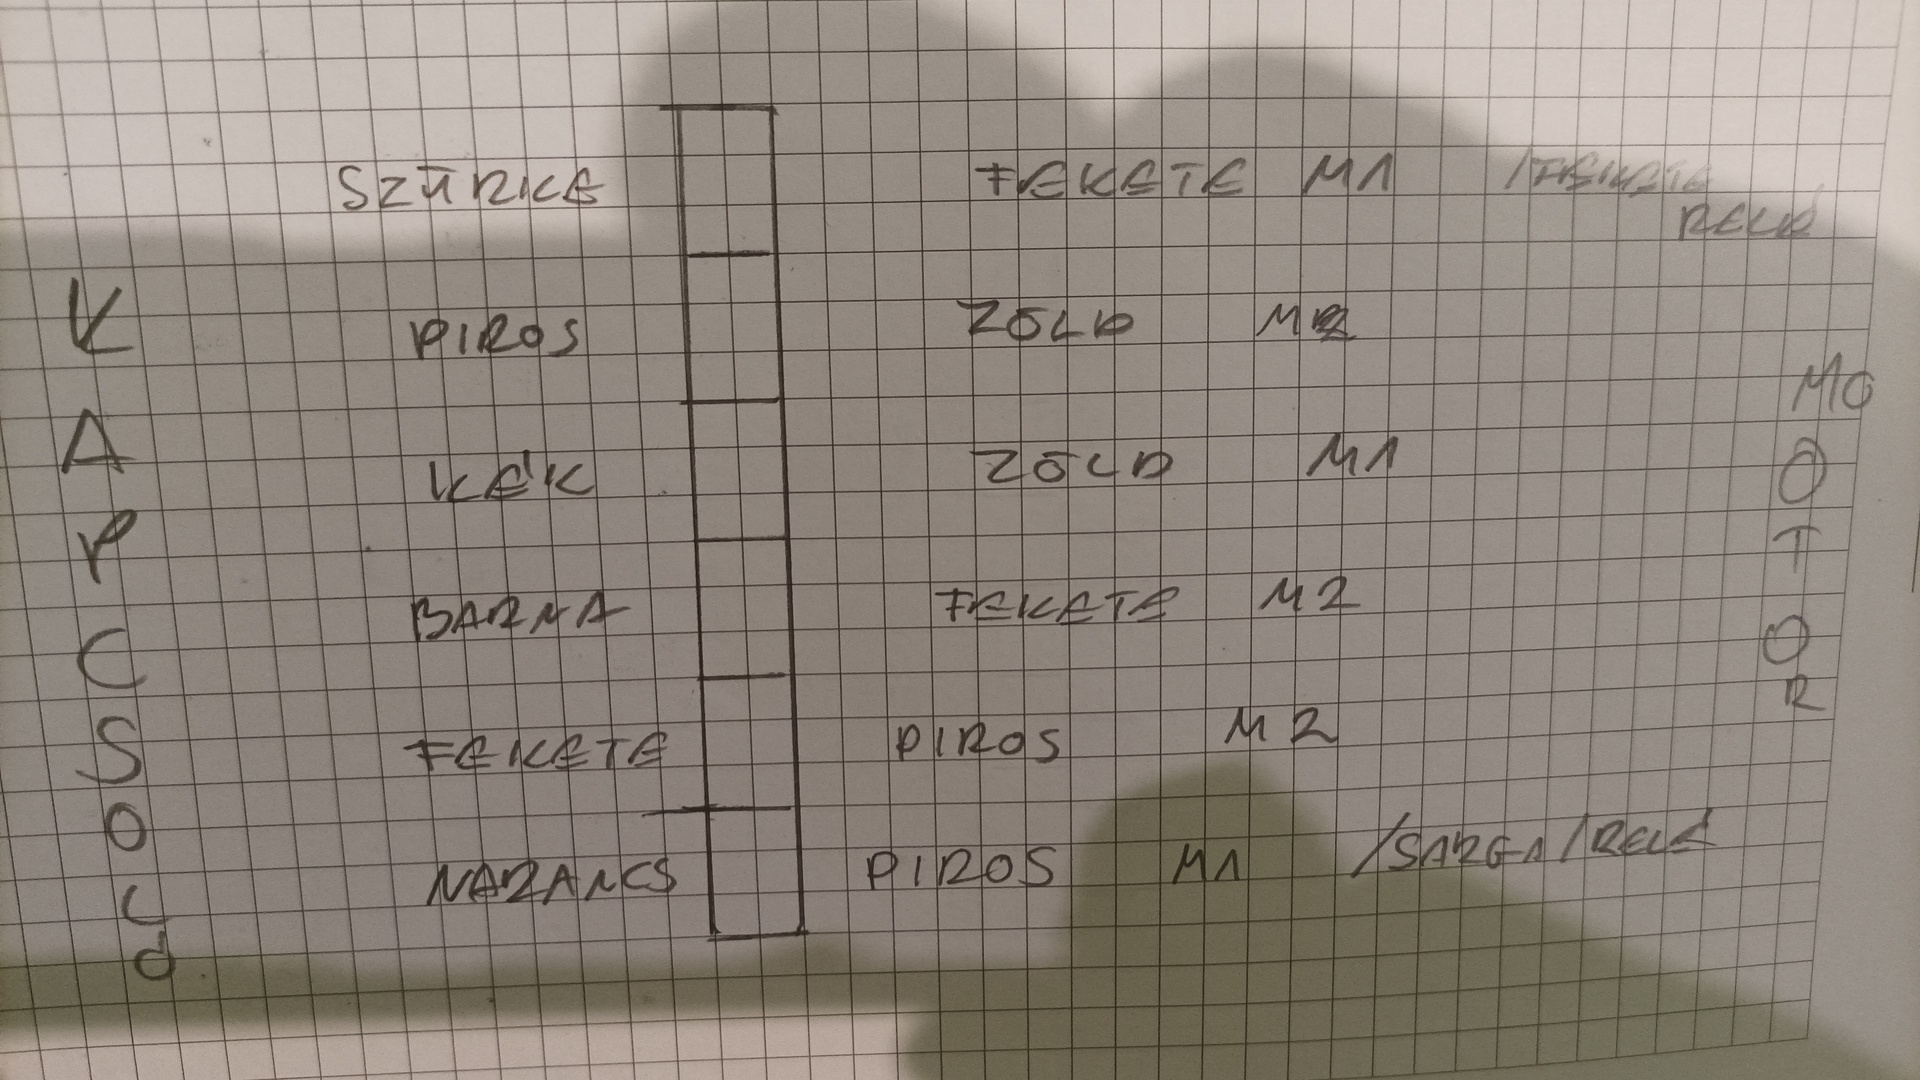 SZÜRKE FEKETE M1 /FEKETE
RELÉ
PIROS ZÖLD M2
KÉK ZÖLD M1
BARNA FEKETE M2
FEKETE PIROS M2
NARANCS PIROS M1 /SÁRGA/RELÉ
KAPCSOLÓ
MOOTOR